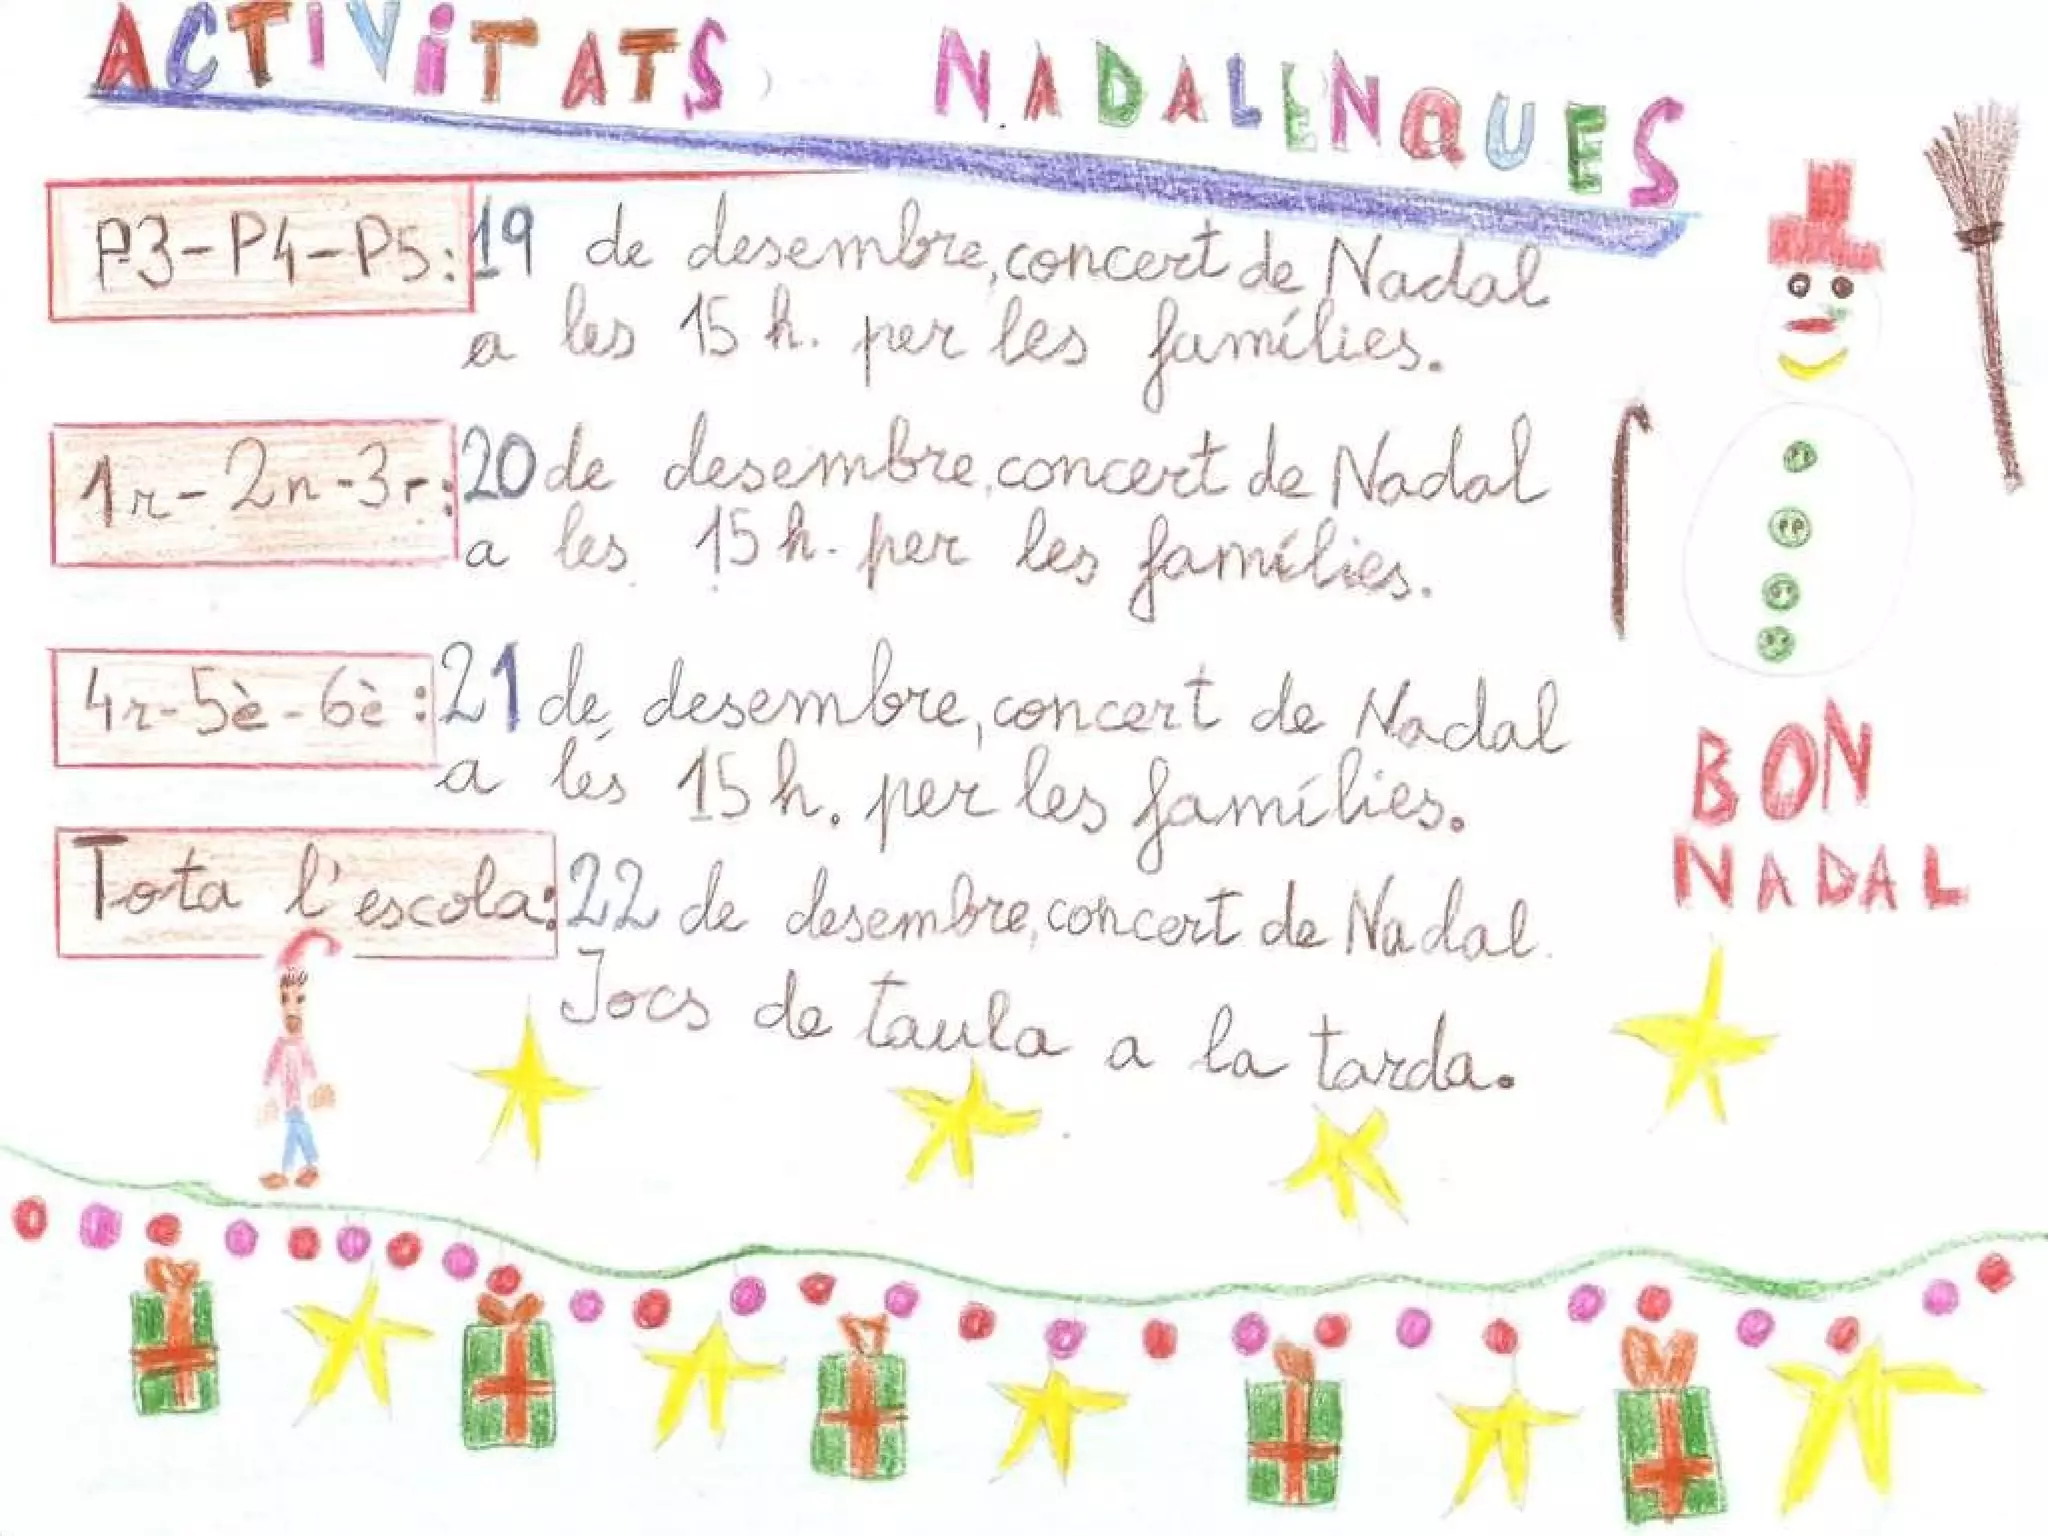 ACTIVITATS NADALENQUES
P3-P4-P5: 19 de desembre, concert de Nadal
a les 15 h. per les famílies.
1r-2n-3r: 20 de desembre, concert de Nadal
a les 15 h. per les famílies.
4r-5è-6è: 21 de desembre, concert de Nadal
a les 15 h. per les famílies.
Tota l'escola: 22 de desembre, concert de Nadal.
Jocs de taula a la tarda.
BON
NADAL